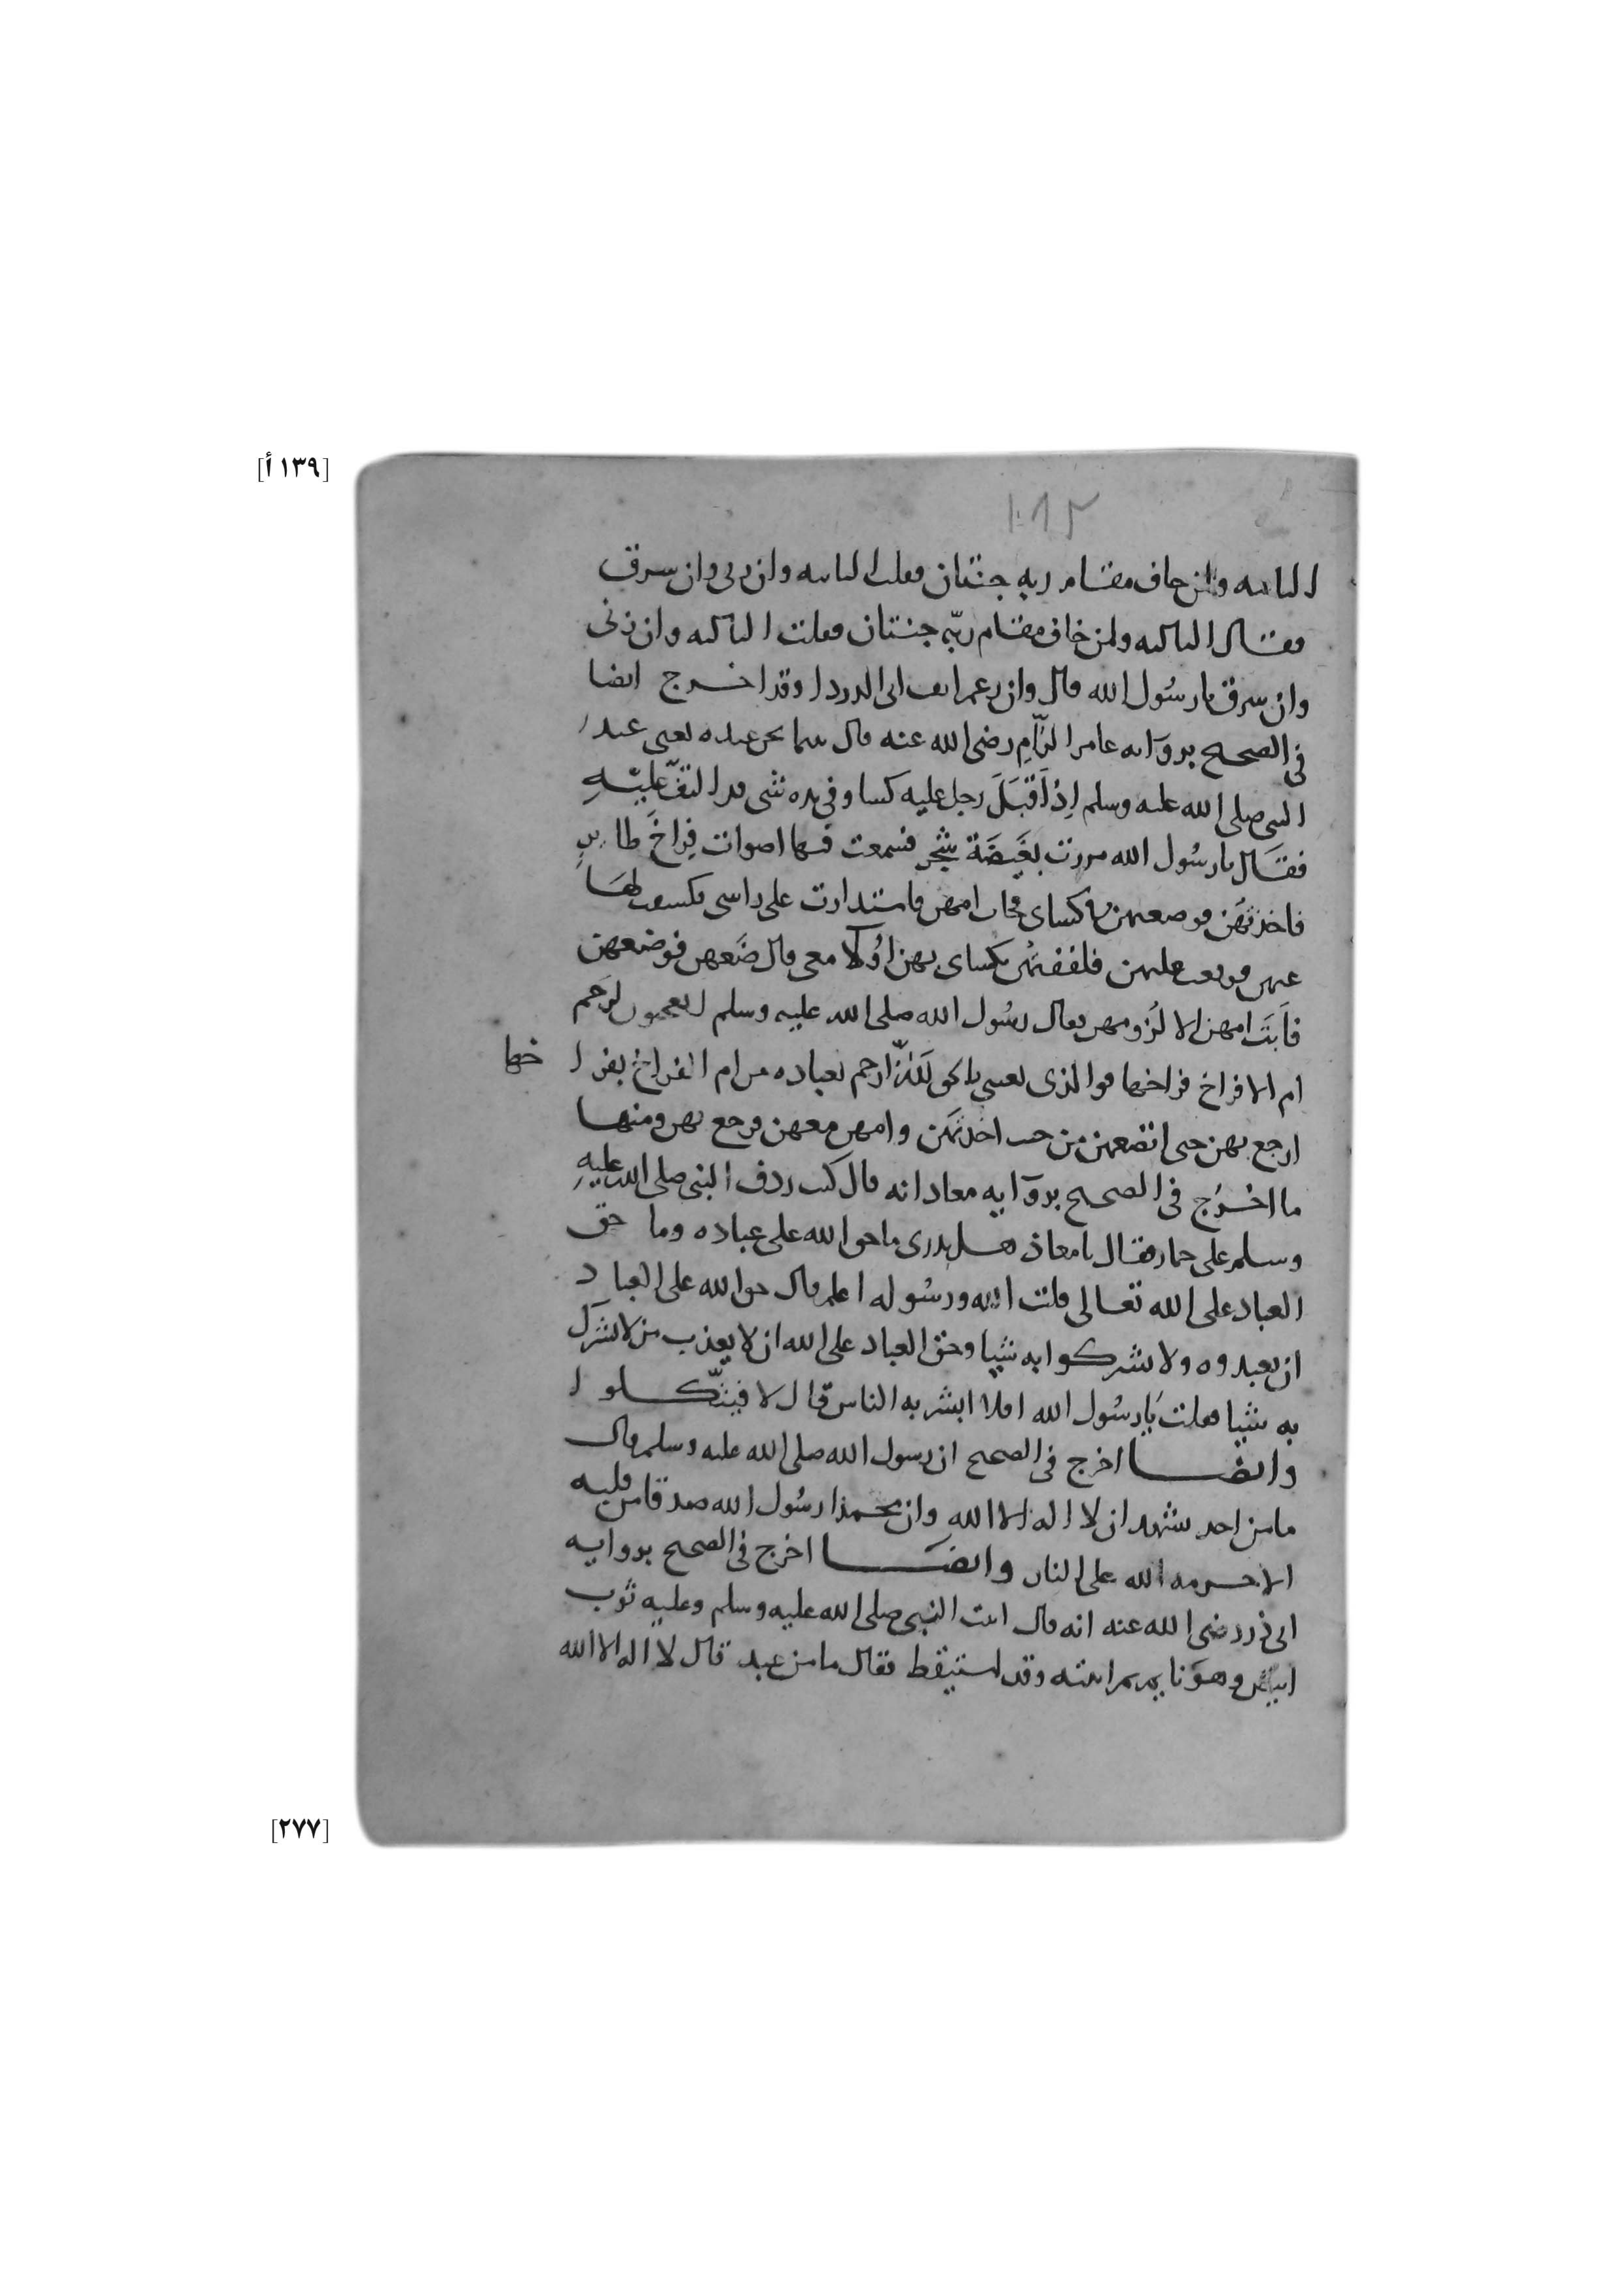 [١٣٩ أ]
الثانيه ولمن خاف مقام ربه جنتان فقلت الثانيه وان زنى وان سرق
فقال الثالثه ولمن خاف مقام ربّه جنتان فقلت الثالثه وان زنى
وان سرق يا رسُول الله قال وان رغم انف ابى الدردا وقد اخرج ايضا
فى الصحيح بروَايه عامر الرَّامِ رضى الله عنه قال بينما نحن عنده يعنى عند
النبى صلى الله عليه وسلم إِذ أَقبَلَ رجل عليه كسا وفى يده شى قد التفّ عليْهِ
فقال يا رسُول الله مررت بغَيضَة شجر فسمعت فيها اصوات فِراخ طايرٍ
فاخذتهُن فوضعتهن فى كساى فجات امهن فاستدارت على راسى فكشفت لهَا
عنهن فوقعت عليهن فلففتهُن بكساى فهن اوُلا معى قال ضَعهن فوضعهن
فأبَت امهن الا لزُومهن فقال رسُول الله صلى الله عليه وسلم اتعجبون لرَحم
ام الافراخ فراخها فوالذى بعثنى بالحق للهُ ارحم بعباده من ام الفراخ بفرا خها
ارجع بهن حتى تضعهن من حيث اخذتهَن وامهن معهن فرجع بهن ومنها
ما اخرُج فى الصحيح بروَايه معاذ انه قال كنت ردف النبى صلى الله عليهِ
وسلم على حمار فقال يا معاذ هل تدرى ما حق الله على عباده وما حق
العباد على الله تعالى قلت الله ورسُوله اعلم قال حق الله على العباد
ان يعبدوه ولا يشركوا به شيا وحق العباد على الله ان لا يعذب من لا يشرك
به شيا فقلت يَا رسُول الله افلا ابشر به الناس قال لا فيتّكلوا
وايضا اخرج فى الصحيح ان رسول الله صلى الله عليه وسلم قال
ما من احد يشهد ان لا اله الا الله وان محمدا رسُول الله صدقا من قلبه
الا حرمه الله على النار وايضَا اخرج فى الصحيح بروايه
ابى ذر رضى الله عنه انه قال اتيت النبى صلى الله عليه وسلم وعليه ثوب
ابيض وهوَ نايم ثم اتيته وقد استيقظ فقال ما من عبد قال لا اله الا الله
[٢٧٧]